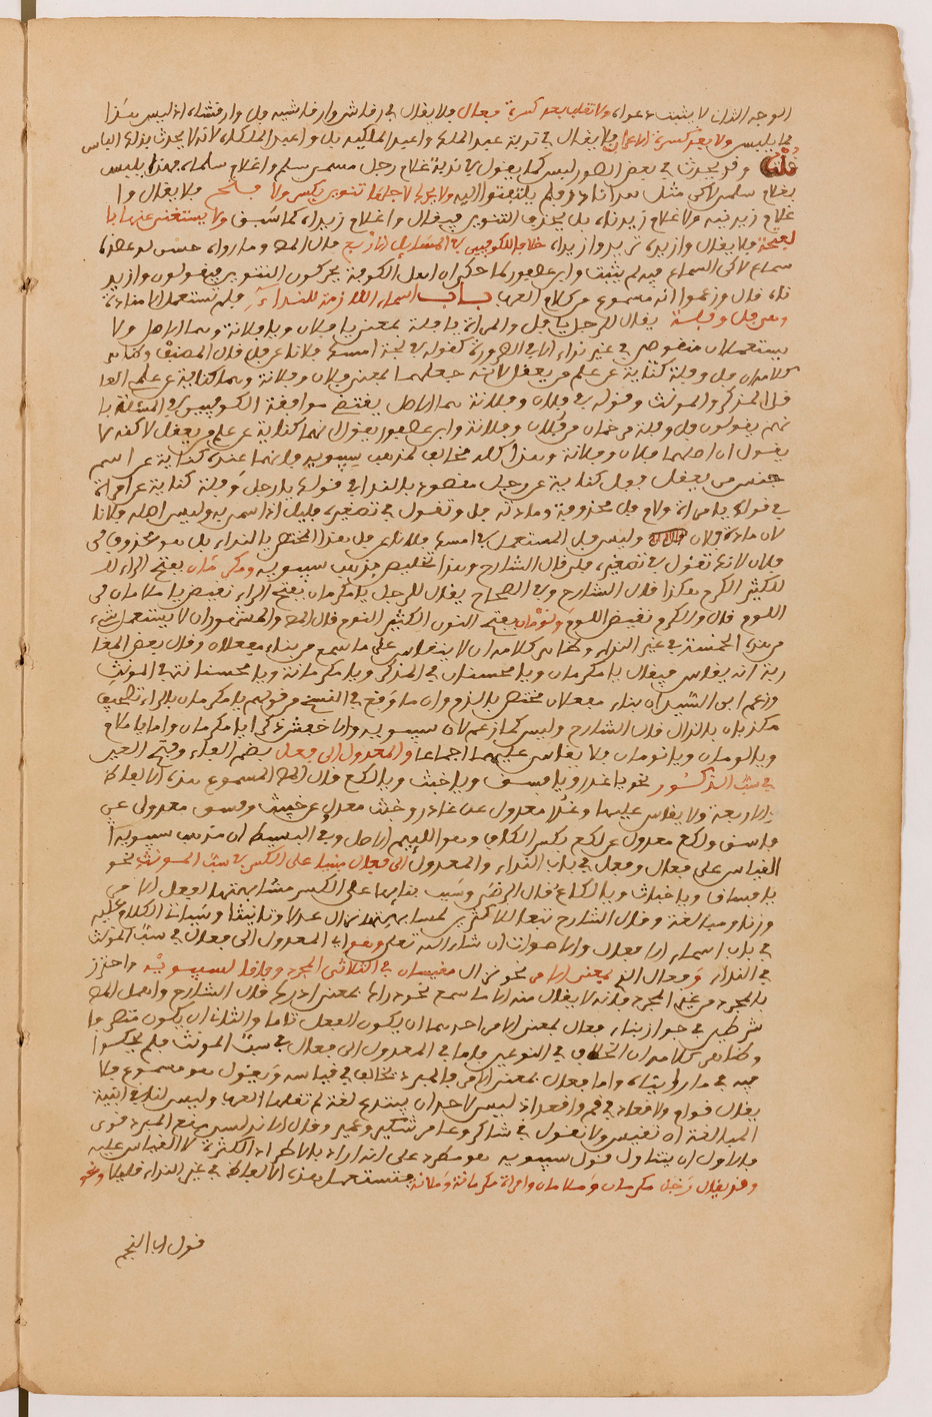 الوجه الثان لا يثبت دعواه ولا تقلب بعد كسرة فعال فلا يقال في رقاش وا رقاشيه بل وا رقاشاه اذ ليس هذا
مما يلبس ولا بعد كسرة الاعراب فلا يقال في ندبة عبد الملك وا عبد الملكيه بل وا عبد الملكاه لانه لا يحدث بذلك الباس
قلت وقد يحدث في بعض الصور لبس كما يقول في ندبة غلام رجل مسمى سلم وا غلام سلماه فهذا يلبس
بغلام سلمى لاكن مثل هذا نادر فلم يلتفتوا اليه ولا يحرك لاجلها تنوين بكسر ولا فتح فلا يقال وا
غلام زيدنيه ولا غلام زيدناه بل يحذف التنوين فيقال وا غلام زيداه كما سبق ولا يستغنى عنها با
لفتحة فلا يقال وا زيد تريد وا زيداه خلافا للكوفيين في المسايل الاربع قال المص وما رواه حسن لو عضده
سماع لاكن السماع فيه لم يثبت وابن عصفور لما حكى ان اهل الكوفة يحركون التنوين فيقولون وا زيد
ناه قال وزعموا انه مسموع من كلام العرب باب اسماء اللازمة للنداء فلم تستعمل الا مناداة
وهي فل وفلة يقال للرجل يا فل والمراة يا فلة بمعنى يا فلان ويا فلانة وهما الاصل ولا
يستعملان منقوصين في غير نداء الا في الضرورة كقوله في لجة امسك فلانا عن فل قال المصنف وظاهر
كلامه ان فل وفلة كناية عن علم من يعقل لانه جعلهما بمعنى فلان وفلانة وهما كناية عن علم العا
قل المذكر والمونث وقوله في فلان وفلانة هما الاصل يقتضي موافقة الكوفيين في المسئلة با
نهم يقولون فل وفلة مرخمان من فلان وفلانة وابن عصفور يقول انهما كناية عن علم من يعقل لاكنه لا
يقول ان اصلهما فلان وفلانة وهذا كله مخالف لمذهب سيبويه فانهما عنده كناية عن اسم
جنس من يعقل ففل كناية عن رجل مقصود بالندا في قولك يا رجل وفلة كناية عن امراة
في قولك يا مراة ولام فل محذوفة ومادته فل وتقول في تصغيره فليل اذا سمي به وليس اصله فلانا
لان مادته فلان وليس فل المستعمل في امسك فلانا عن فل هذا المختص بالنداء بل هو محذوف من
فلان لانك تقول في تصغيره فلين قال الشارح وهذا تخليص مذهب سيبويه ومكرمان بفتح الراء لل
للكثير الكرم هكذا قال الشارح وفي الصحاح يقال للرجل يا مكرمان بفتح الراء نقيض يا ملامان من
اللوم قال والكرم نقيض اللوم ونومان بفتح النون الكثير النوم قال المص والمشهور ان لا يستعمل شيء
من هذه الخمسة في غير النداء وظاهر كلامه ان لا ينقاس على ما سمع من بناء مفعلان وقال بعض المغا
ربة انه يقاس فيقال يا مكرمان ويا محسنان في المذكر ويا مكرمانة ويا محسنانة في المونث
وزعم ابن السيد ان بناء مفعلان مختص بالذم وان ما وقع في النسخ من قولهم يا مكرمان بالراء تصحيف
مكذبان بالذال قال الشارح وليس كما زعم لان سيبويه والاخفش ذكرا يا مكرمان واما يا ملام
ويا لومان ويا نومان فلا يقاس عليهما اجماعا والمعدول الى فعل بضم الفاء وفتح العين
في سب الذكور نحو يا غدر ويا فسق ويا خبث ويا لكع قال المص المسموع هذه الالفاظ
الاربعة ولا يقاس عليها وغدر معدول عن غادر وخبث معدل عن خبيث وفسق معدول عن
فاسق ولكع معدول عن لكع بكسر الكاف وهو اللييم الاصل وفي البسيط ان مذهب سيبويه
القياس على فعال وفعل في باب النداء والمعدول الى فعال مبنيا على الكسر في سب المونث نحو
يا فساق ويا خباث ويا لكاع قال الرضي وسبب بنايها على الكسر مشابهتها لفعل الامر
وزنا ومبالغة وقال الشارح تبعا للاكثرين لمشابهتها نزال عدلا وتانيثا وسياتي الكلام عليه
في باب اسماء الافعال والاصوات ان شاء الله تعلى وهو اي المعدول الى فعال في سب المونث
في النداء وفعال الذي بمعنى الامر نحو نزال مقيسان في الثلاثي المجرد وفاقا لسيبويه واحترز
بالمجرد من غير المجرد فانه لا يقال منه الا ما سمع نحو دراك بمعنى ادرك قال الشارح واهمل المص
شرطين في جواز بناء فعال بمعنى الامر احدهما ان يكون الفعل تاما والثاني ان يكون متصرفا
وظاهر كلامه ان الخلاف في النوعين فاما في المعدول الى فعال في سب المونث فلم يحكوا
فيه في ما رايناه واما فعال بمعنى الامر فالمبرد يخالف في قياسه ويقول هو مسموع فلا
يقال قوام ولا قعاد في قم واقعد اذ ليس لاحد ان يبتدع لغة لم تقلها العرب وليس لنا في ابنية
المبالغة ان نقيس ولا نقول في شاكر وغافر شكير وغفير وقال الاندلسي منع المبرد قوي
فالاولى ان يتناول قول سيبويه هو مطرد على انه اراد بالاطراد الكثرة لا القياس عليه
وقد يقال رجل مكرمان وملامان وامراة مكرمانة وملامة فتستعمل هذه الالفاظ في غير النداء قليلا ونحو
قول ابا النجم